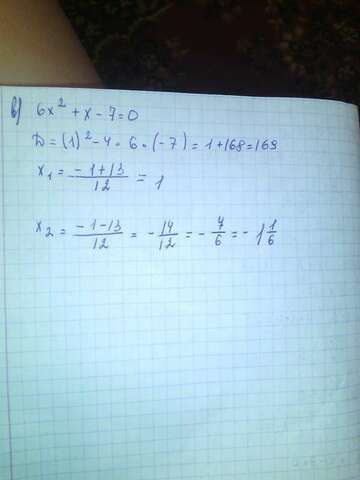 в) 6x² + x - 7 = 0
D = (1)² - 4 · 6 · (-7) = 1 + 168 = 169
x₁ = (-1+13)/12 = 1
x₂ = (-1-13)/12 = -14/12 = -7/6 = -1 1/6